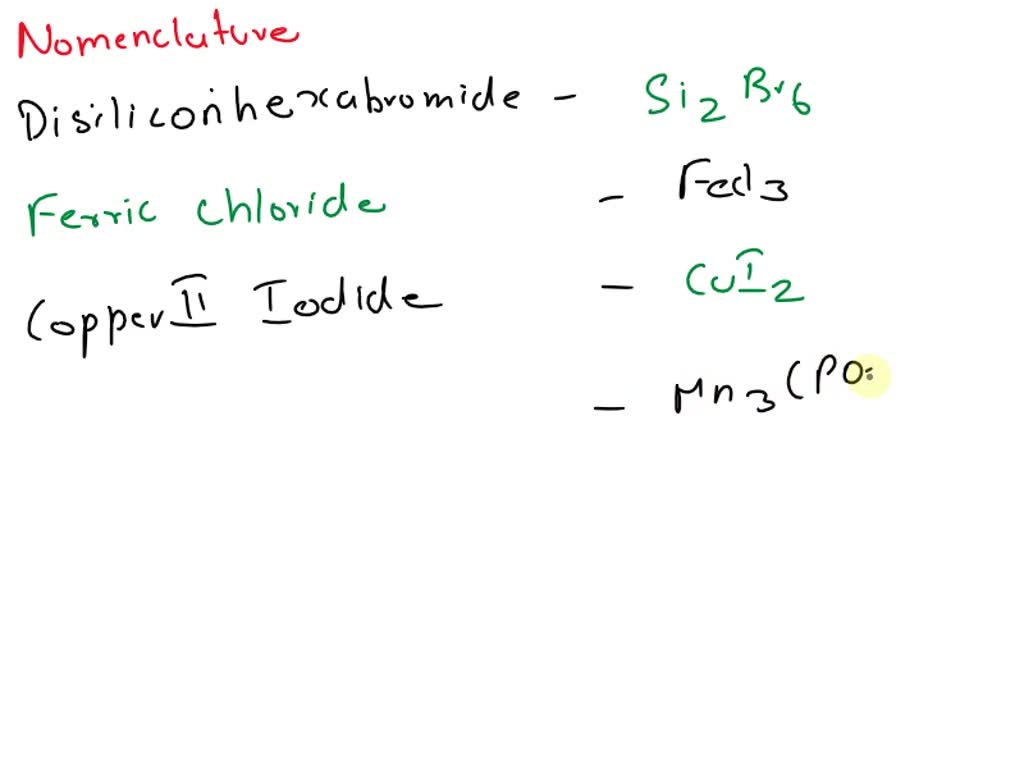 Nomenclature
Disiliconhexabromide - Si2Br6
Ferric chloride - FeCl3
Copper II Iodide - CuI2
- Mn3(PO